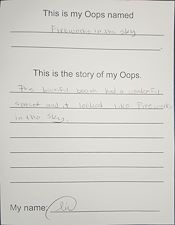 This is my Oops named
Fireworks in the sky
This is the story of my Oops.
This beautiful beach had a wonderful
sunset and it looked like fireworks
in the sky.
My name: Liv